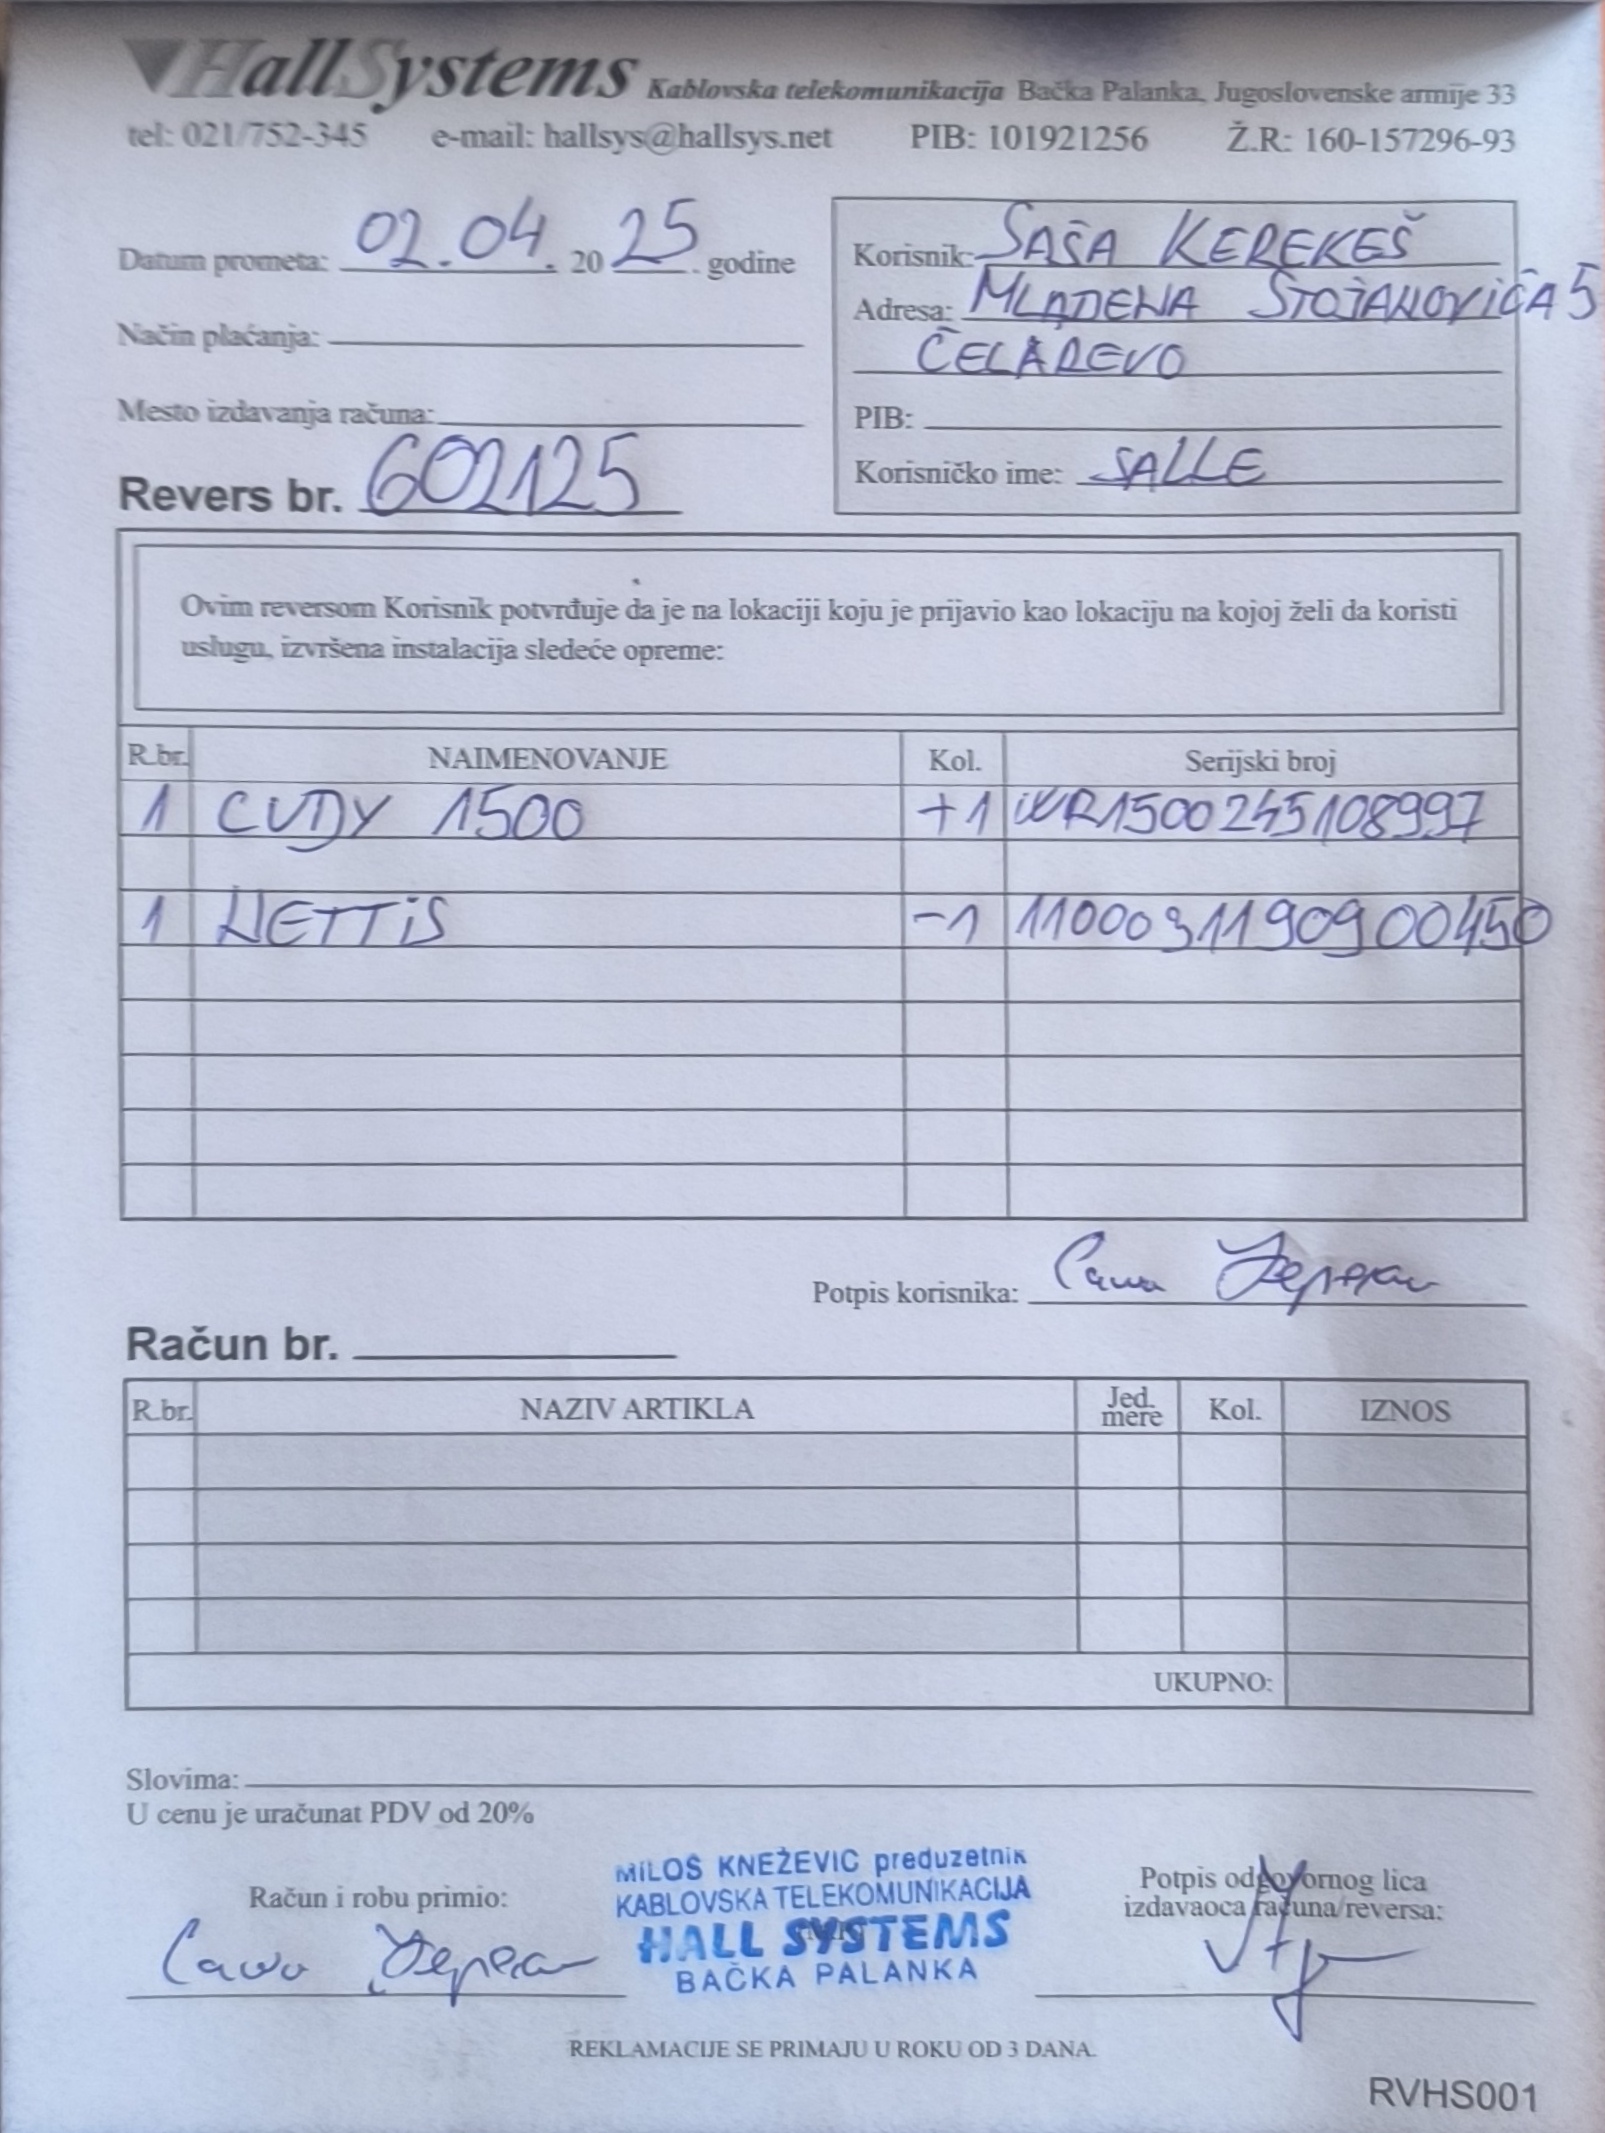 HallSystems Kablovska telekomunikacija Bačka Palanka, Jugoslovenske armije 33
tel: 021/752-345 e-mail: hallsys@hallsys.net PIB: 101921256 Ž.R: 160-157296-93
Datum prometa: 02.04. 2025. godine
Način plaćanja:
Mesto izdavanja računa:
Revers br. 602125
Korisnik: SAŠA KEREKEŠ
Adresa: MLADENA STOJANOVIĆA 5
ČELAREVO
PIB:
Korisničko ime: SALLE
Ovim reversom Korisnik potvrđuje da je na lokaciji koju je prijavio kao lokaciju na kojoj želi da koristi
uslugu, izvršena instalacija sledeće opreme:
R.br. NAIMENOVANJE Kol. Serijski broj
1 CUDY 1500 +1 WR1500245108997
1 NETTIS -1 1100031190900450
Potpis korisnika: Саша
Račun br.
R.br. NAZIV ARTIKLA Jed. mere Kol. IZNOS
UKUPNO:
Slovima:
U cenu je uračunat PDV od 20%
Račun i robu primio:
Саша
MILOŠ KNEŽEVIĆ preduzetnik
KABLOVSKA TELEKOMUNIKACIJA
HALL SYSTEMS
BAČKA PALANKA
Potpis odgovornog lica
izdavaoca računa/reversa:
REKLAMACIJE SE PRIMAJU U ROKU OD 3 DANA.
RVHS001